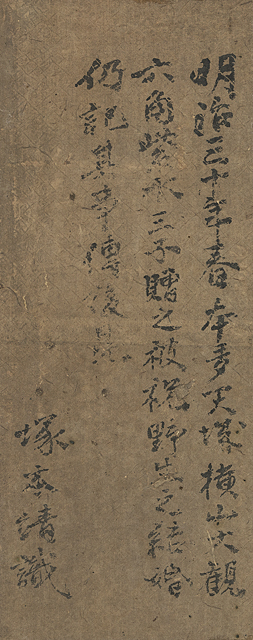 明治三十年春本多天城横山大観
六角紫水三子贈之被祝野生之結婚
仍記其事傳後昆
塚本靖識